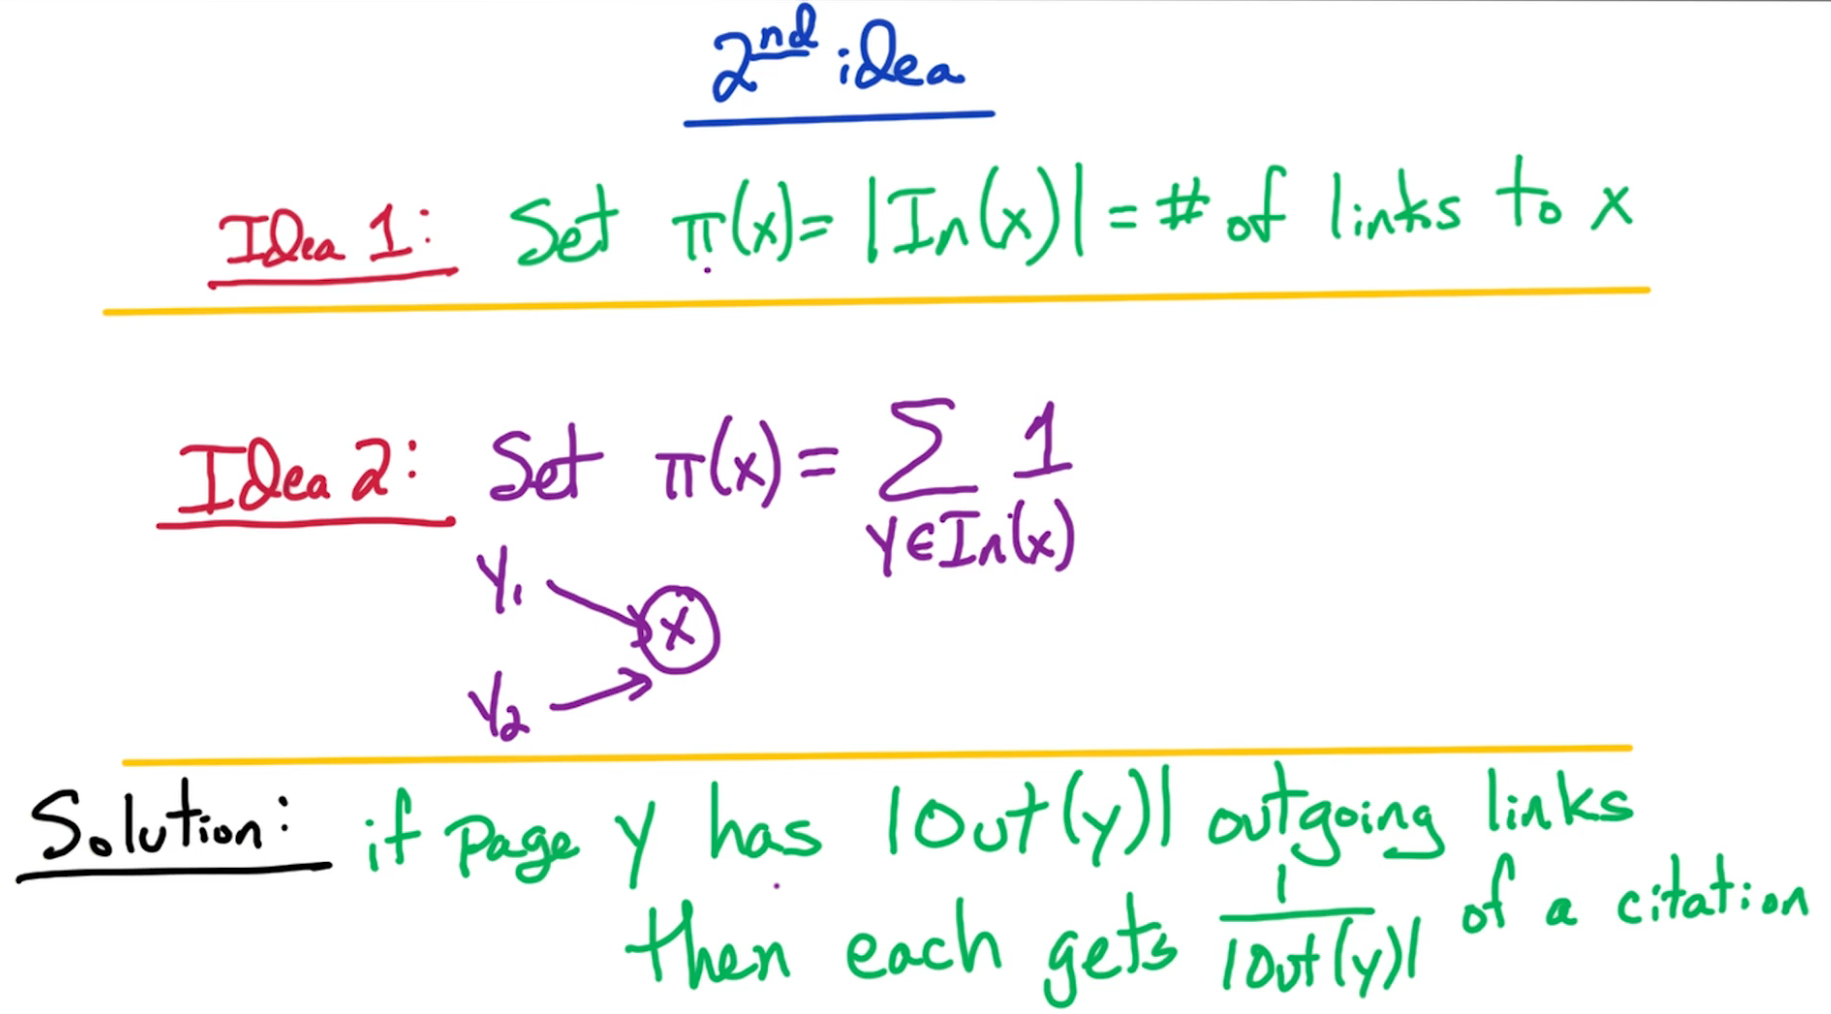 2nd idea
Idea 1: Set π(x) = |In(x)| = # of links to x
Idea 2: Set π(x) = ∑ 1
y∈In(x)
y₁
x
y₂
Solution: if page y has |Out(y)| outgoing links
then each gets 1/|Out(y)| of a citation